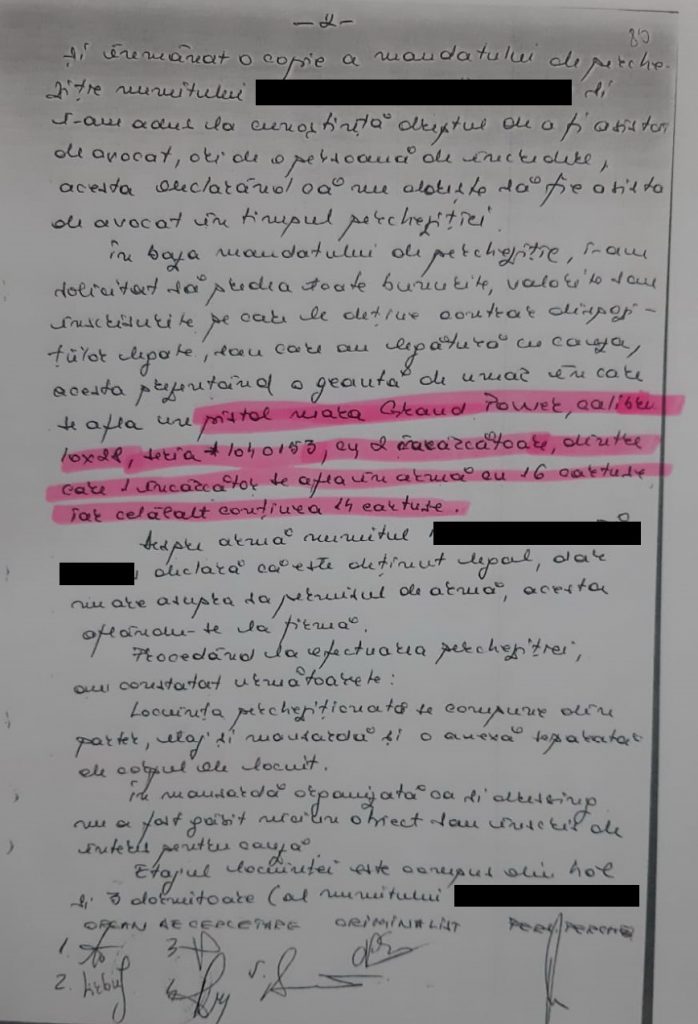 - 2 -
și înmânat o copie a mandatului de perche-
ziție numitului și
i-am adus la cunoștință dreptul de a fi asistat
de avocat, ori de o persoană de încredere,
acesta declarând că nu dorește să fie asista
de avocat în timpul percheziției.
În baza mandatului de percheziție, i-am
solicitat să predea toate bunurile, valorile sau
înscrisurile pe care le deține contrar dispozi-
țiilor legale, sau care au legătură cu cauza,
acesta prezentând o geantă de umăr în care
se afla un pistol marca Grand Power, calibru
10x22, seria * 1040153, cu 2 încărcătoare, dintre
care 1 încărcător se afla în armă cu 16 cartușe
iar celălalt conținea 14 cartușe.
Despre armă numitul
declară că este deținut legal, dar
nu are asupra sa permisul de armă, acesta
aflându-se la firmă.
Procedând la efectuarea percheziției,
am constatat următoarele:
Locuința percheziționată se compune din
parter, etaj și mansardă și o anexă separată
de corpul de locuit.
În mansardă organizată ca și dressing
nu a fost găsit niciun obiect sau înscris de
interes pentru cauză.
Etajul locuinței este compus din hol
și 3 dormitoare (al numitului
ORGAN DE CERCETARE CRIMINALIST PERS. PERCHEZ
1. 3.
2. 4. 5.